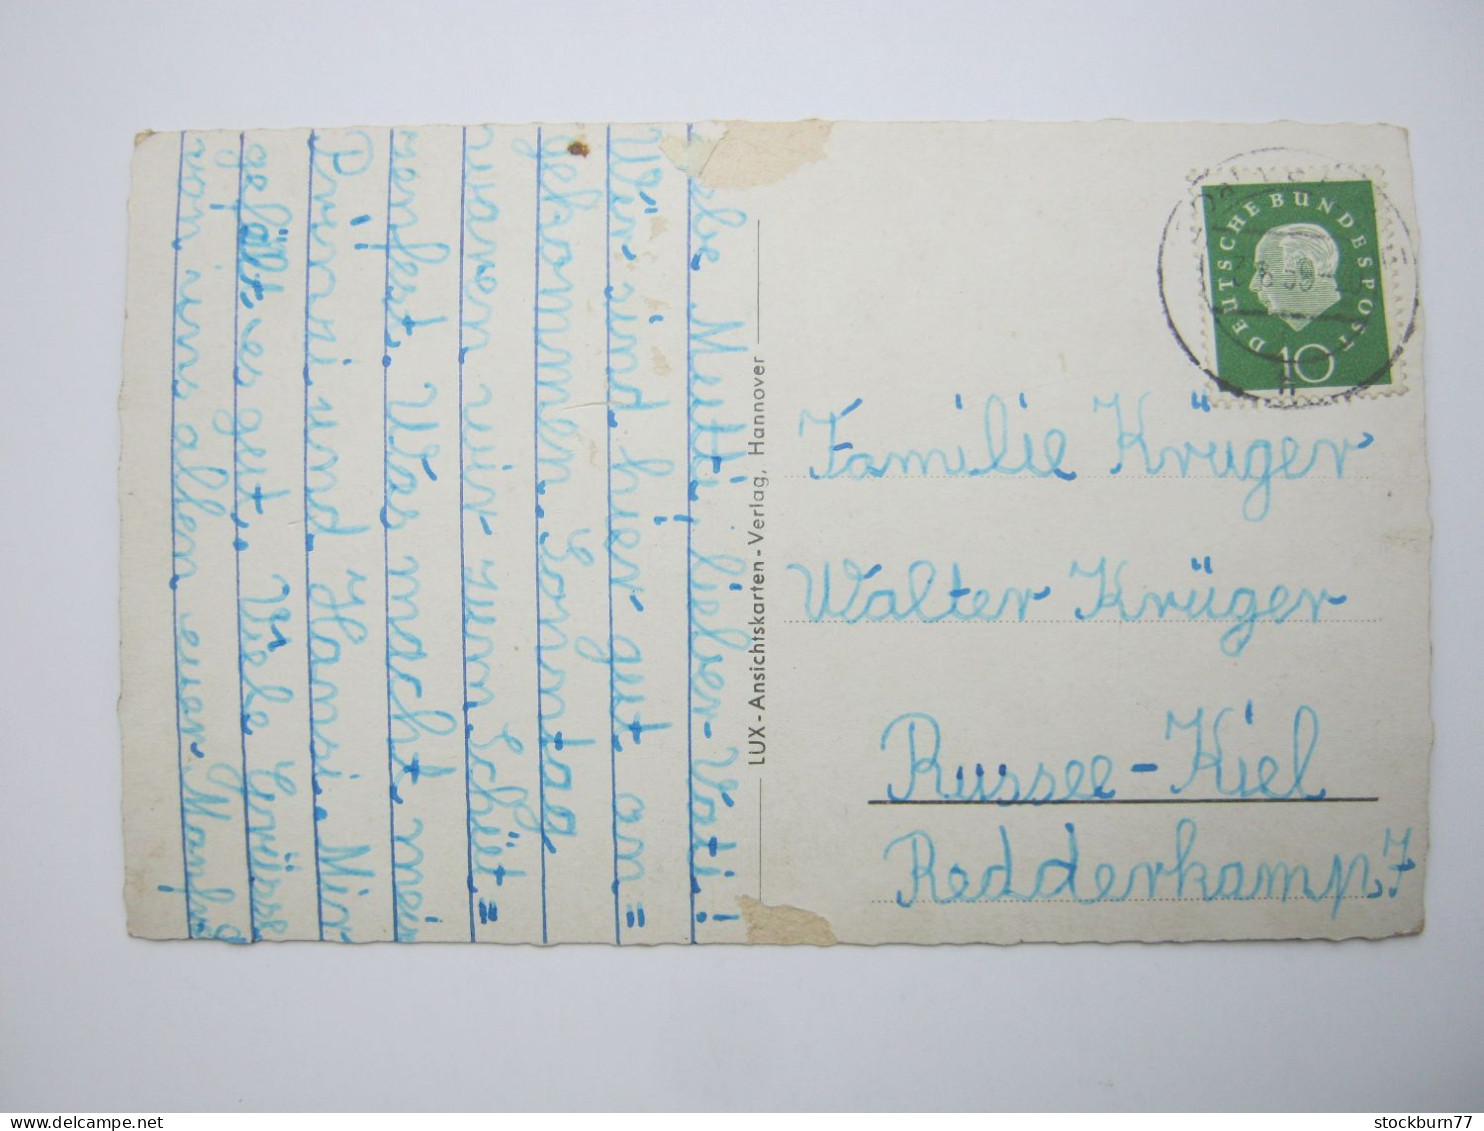 Liebe Mutti, lieber Vati!
Wir sind hier gut an=
gekommen. Sonntag
waren wir zum Schüt=
zenfest. Was macht mein
Prinzi und Hansi. Mir
gefällt es gut. Viele Grüsse
von uns allen euer Manfred
LUX - Ansichtskarten - Verlag, Hannover
DEUTSCHE BUNDESPOST
10
Familie Krüger
Walter Krüger
Russee-Kiel
Redderkamp 7
stockburn77